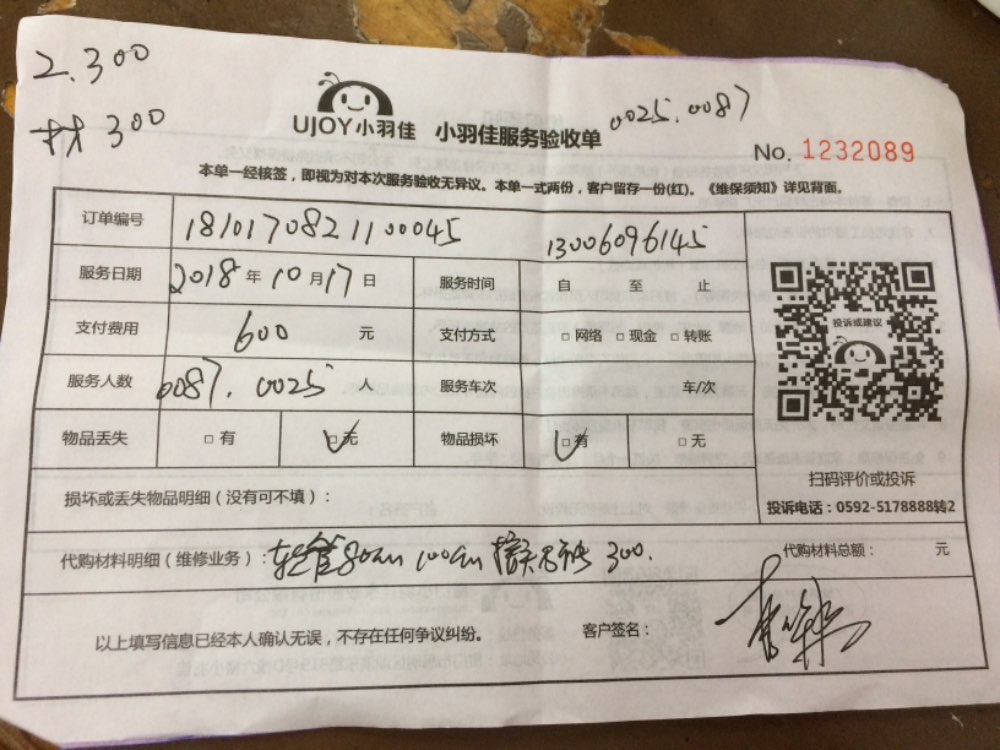 2.300
材 300
UJOY小羽佳 小羽佳服务验收单 0025.0087
No. 1232089
本单一经核签，即视为对本次服务验收无异议。本单一式两份，客户留存一份(红)。《维保须知》详见背面。
订单编号 1810170821100045 13006096145
服务日期 2018 年 10 月 17 日 服务时间 自 至 止
支付费用 600 元 支付方式 □ 网络 □ 现金 □ 转账
投诉或建议
服务人数 0087. 0025 人 服务车次 车/次
物品丢失 □ 有 □ 无 物品损坏 □ 有 □ 无
扫码评价或投诉
损坏或丢失物品明细（没有可不填）：
投诉电话：0592-5178888转2
代购材料明细（维修业务）： 管80cm 100cm 300. 代购材料总额： 元
以上填写信息已经本人确认无误，不存在任何争议纠纷。 客户签名：